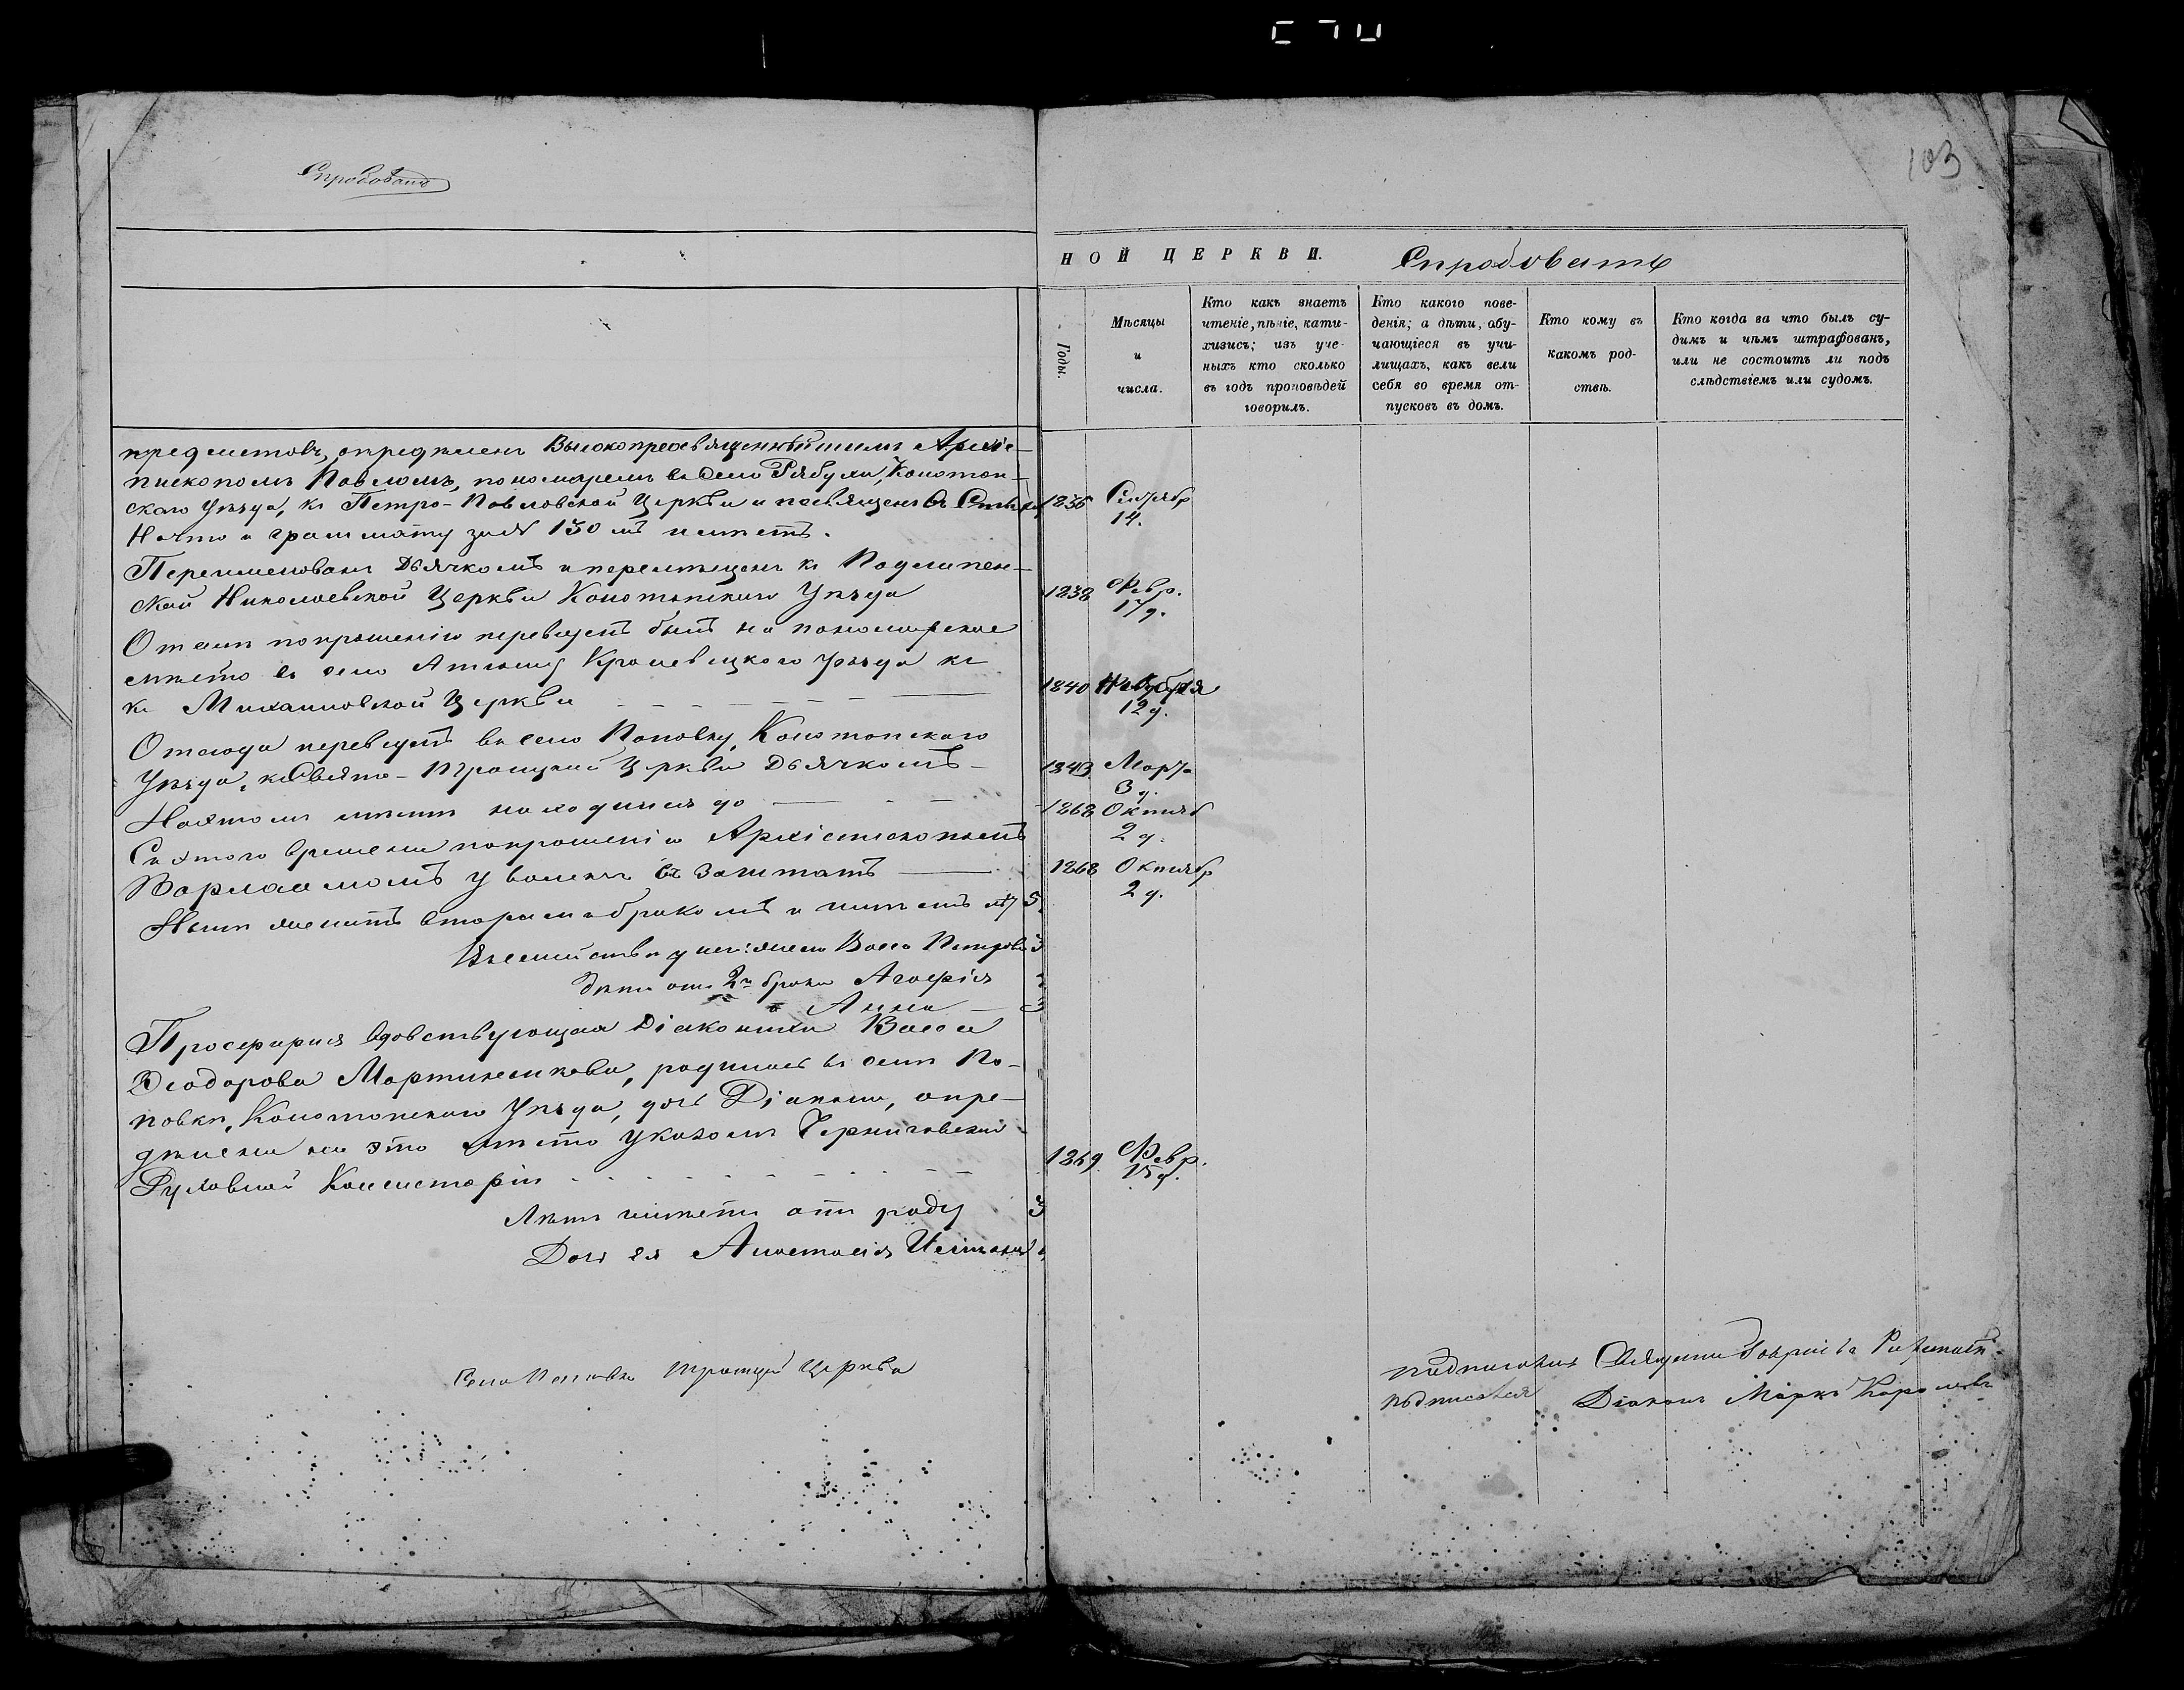 103
НОЙ ЦЕРКВИ.
Годы.
Мѣсяцы
и
числа.
Кто какъ знаетъ
чтеніе, пѣніе, кати-
хизисъ; изъ уче-
ныхъ кто сколько
въ годъ проповѣдей
говорилъ.
Кто какого пове-
денія; а дѣти, обу-
чающіеся въ учи-
лищахъ, какъ вели
себя во время от-
пусковъ въ домъ.
Кто кому въ
какомъ род-
ствѣ.
Кто когда за что былъ су-
димъ и чѣмъ штрафованъ,
или не состоитъ ли подъ
слѣдствіемъ или судомъ.
предметовъ, опредѣленъ Высокопреосвященнѣйшимъ Архіе-
пископомъ Павломъ, пономаремъ въ село Рябухи, Конотоп-
скаго Уѣзда, къ Петро-Павловской Церкви и посвященъ въ
1836
14.
грammату за № 150 мъ имѣетъ.
Переименованъ Дьячкомъ и перемѣщенъ къ Подлипен-
ской Николаевской Церкви Конотопскаго Уѣзда
1838 Февр.
17 д.
попрошенію переведенъ былъ на пономарское
мѣсто въ село Атюшу Кролевецкаго уѣзда къ
къ Михаиловской Церкви
1840
12 д.
Отсюда переведенъ въ село Поповку, Конотопскаго
Уѣзда, къ Свято-Троицкой Церкви Дьячкомъ
1843 Марта
3 д.
мѣстѣ находился до
1868 Октяб
2 д.
Съ этого времени попрошенію Архіепископомъ
Варлаамомъ уволенъ въ заштатъ
1868 Октябр
2 д.
вторымъ бракомъ и имѣетъ лѣтъ
Въ семействѣ у него: жена Васса Петрова
Дѣти отъ 2го брака Агафія
Анна
Просфирня вдовствующая Діаконица Васса
Ѳеодорова Мартиновикова, родилась въ селѣ По-
повкѣ, Конотопскаго Уѣзда, дочь Діакона, опре-
дѣлена на это мѣсто указомъ Черниговской
Духовной Консисторіи
1869 Февр.
15 д.
Лѣтъ имѣетъ отъ роду
Дочь ея Анастасія
Села Поповки Троицкой Церкви
подписался
подписался Діаконъ Маркъ